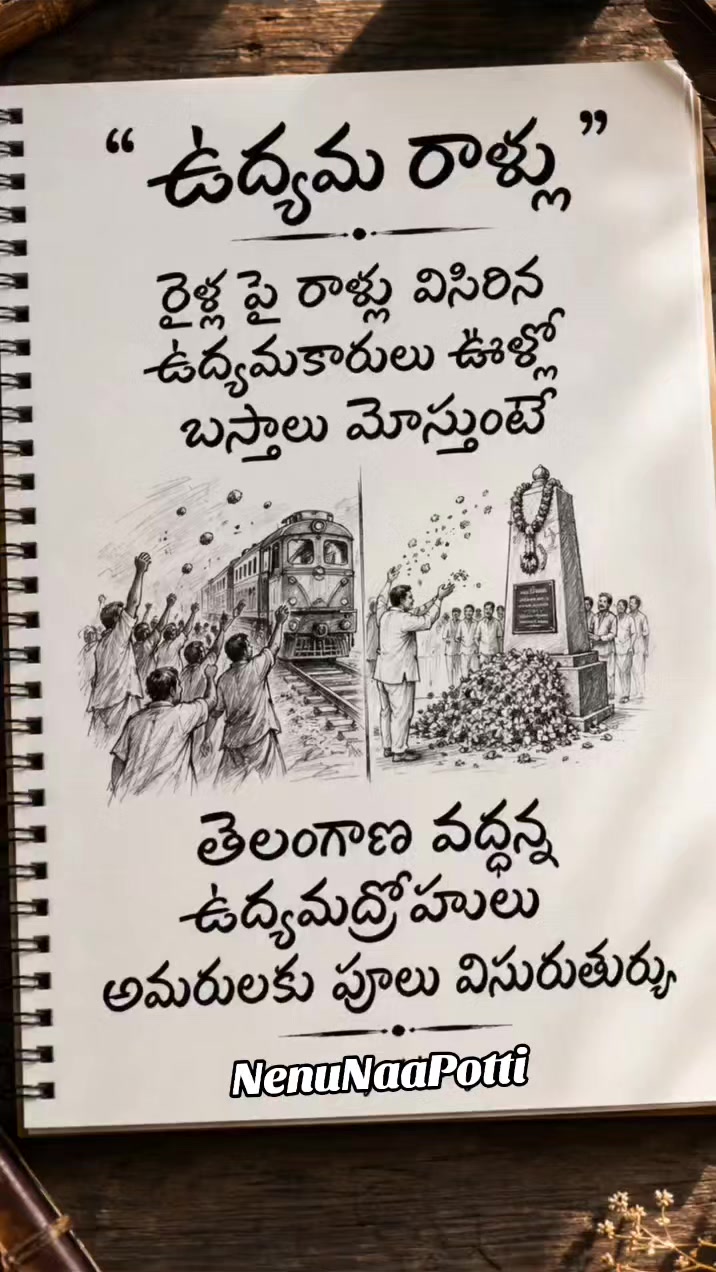 “ ఉద్యమ రాళ్లు ”
రైళ్ల పై రాళ్లు విసిరిన
ఉద్యమకారులు ఊళ్లో
బస్తాలు మోస్తుంటే
తెలంగాణ వద్ధన్న
ఉద్యమద్రోహులు
అమరులకు పూలు విసురుతుర్యు
NenuNaaPotti